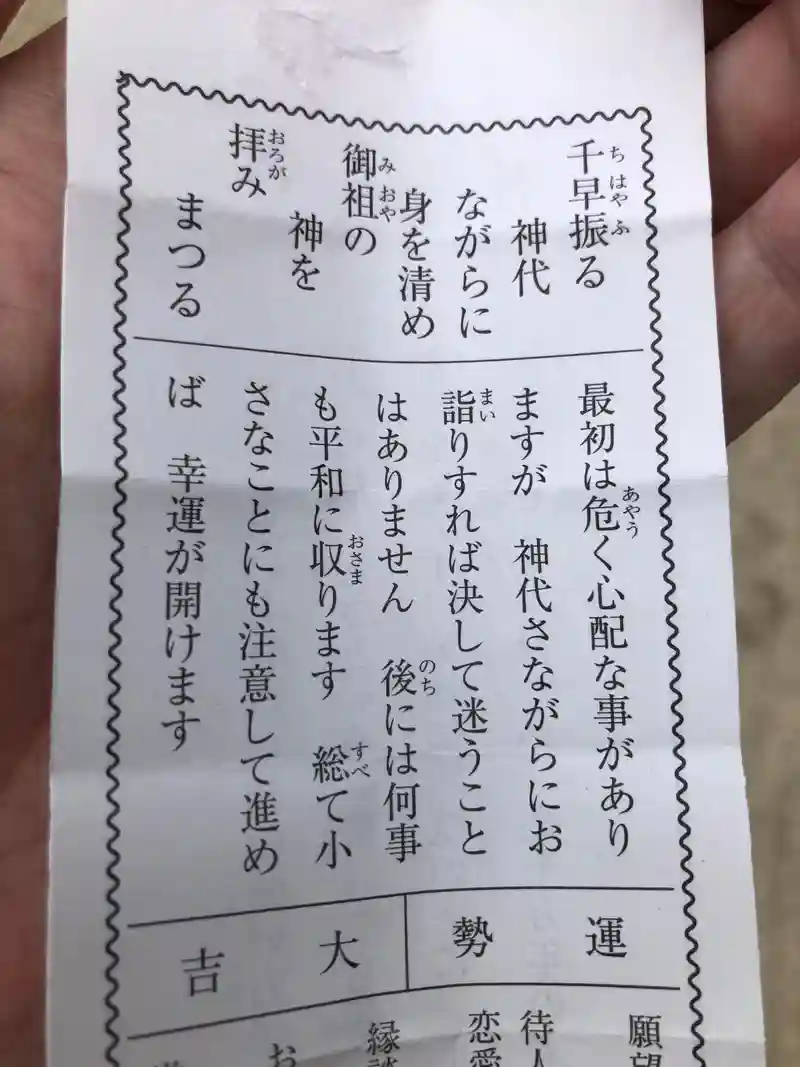 千早振る
神代
ながらに
身を清め
御祖の
神を
拝み
まつる
最初は危く心配な事があり
ますが　神代さながらにお
詣りすれば決して迷うこと
はありません　後には何事
も平和に収ります　総て小
さなことにも注意して進め
ば　幸運が開けます
運勢
大吉
願望
待人
恋愛
縁談
お